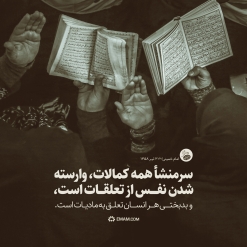 سرمنشأ همه کمالات، وارسته
شدن نفس از تعلقات است،
و بدبختی هر انسان تعلق به مادیات است.
EMAM.COM